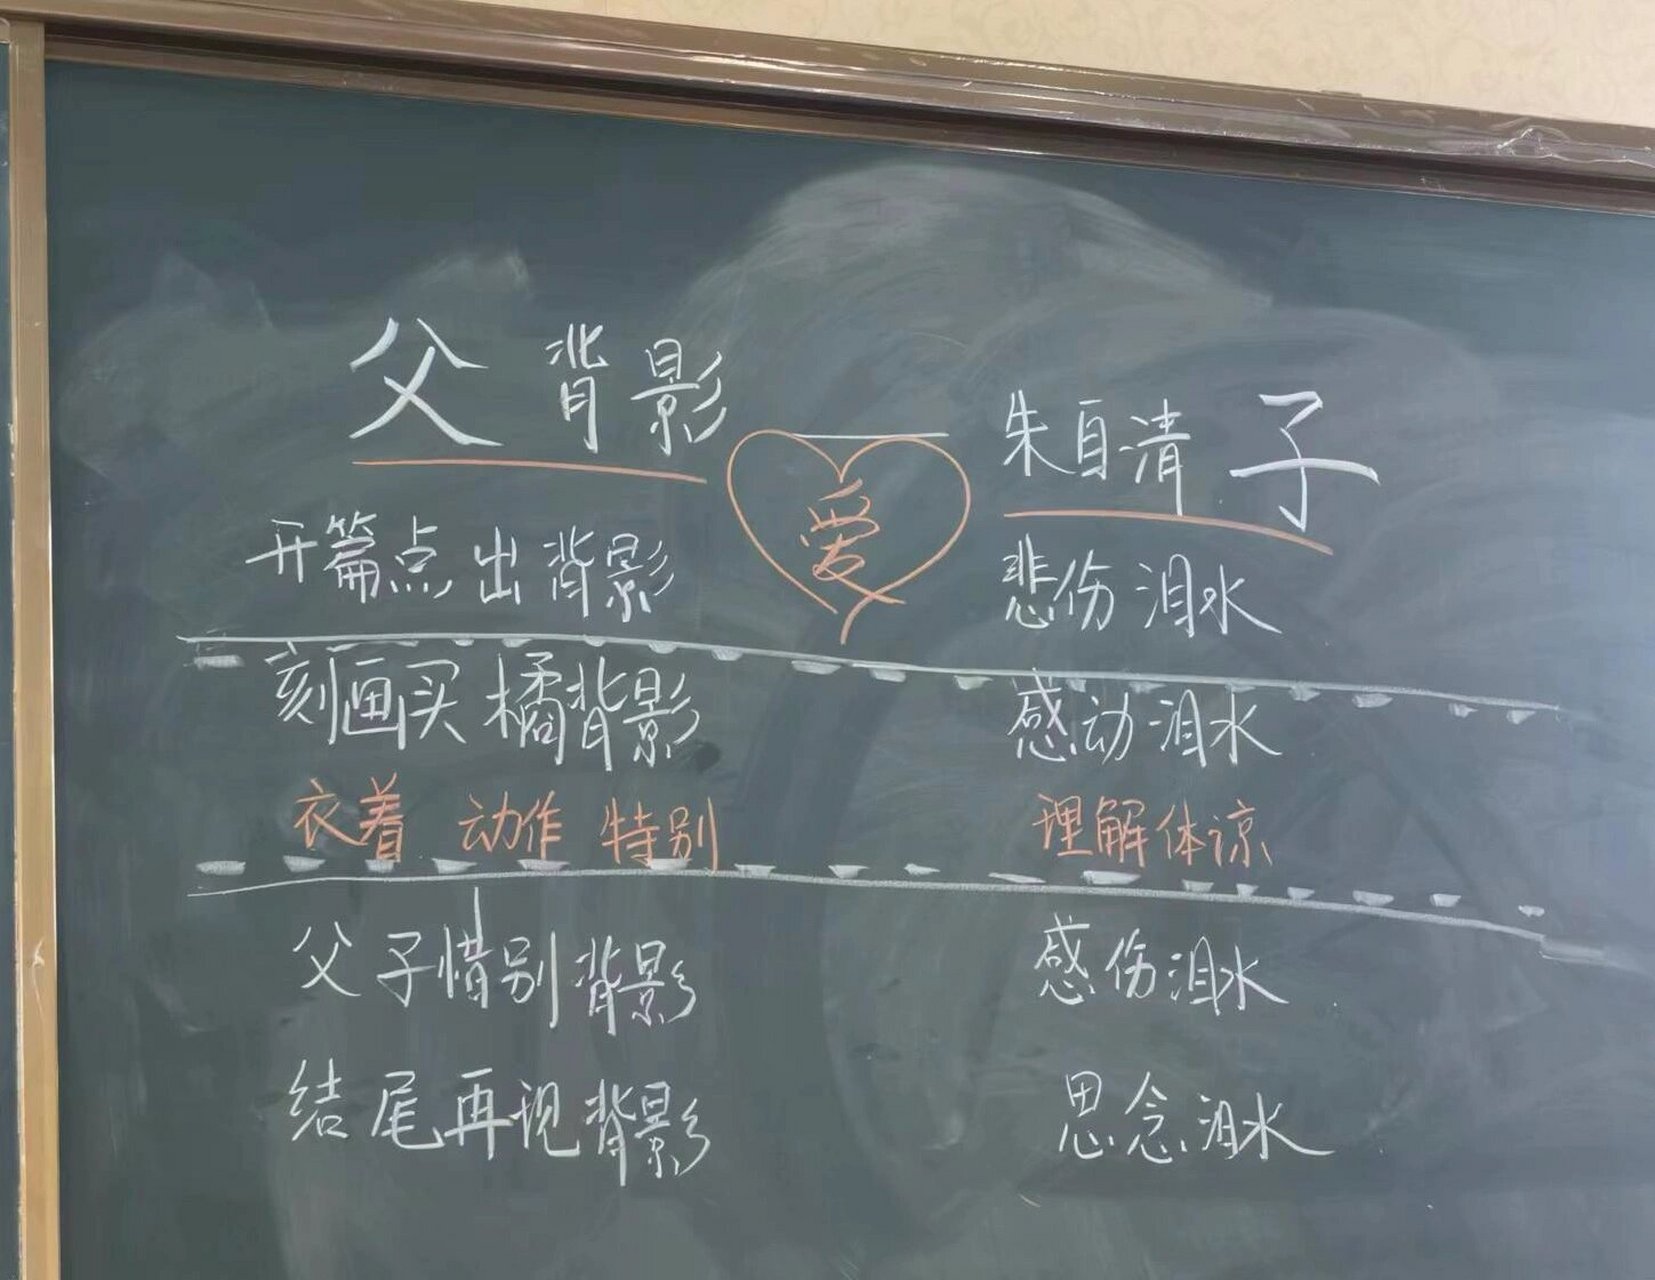 父 背影 朱自清 子
爱
开篇点出背影 悲伤泪水
刻画买橘背影 感动泪水
衣着 动作 特别 理解体谅
父子惜别背影 感伤泪水
结尾再现背影 思念泪水